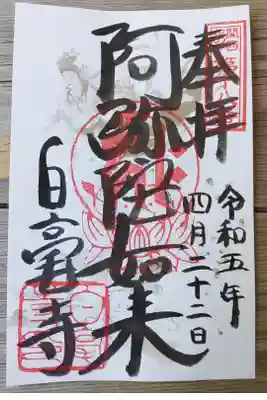 奉拝
阿弥陀如来
白毫寺
令和五年
四月二十二日